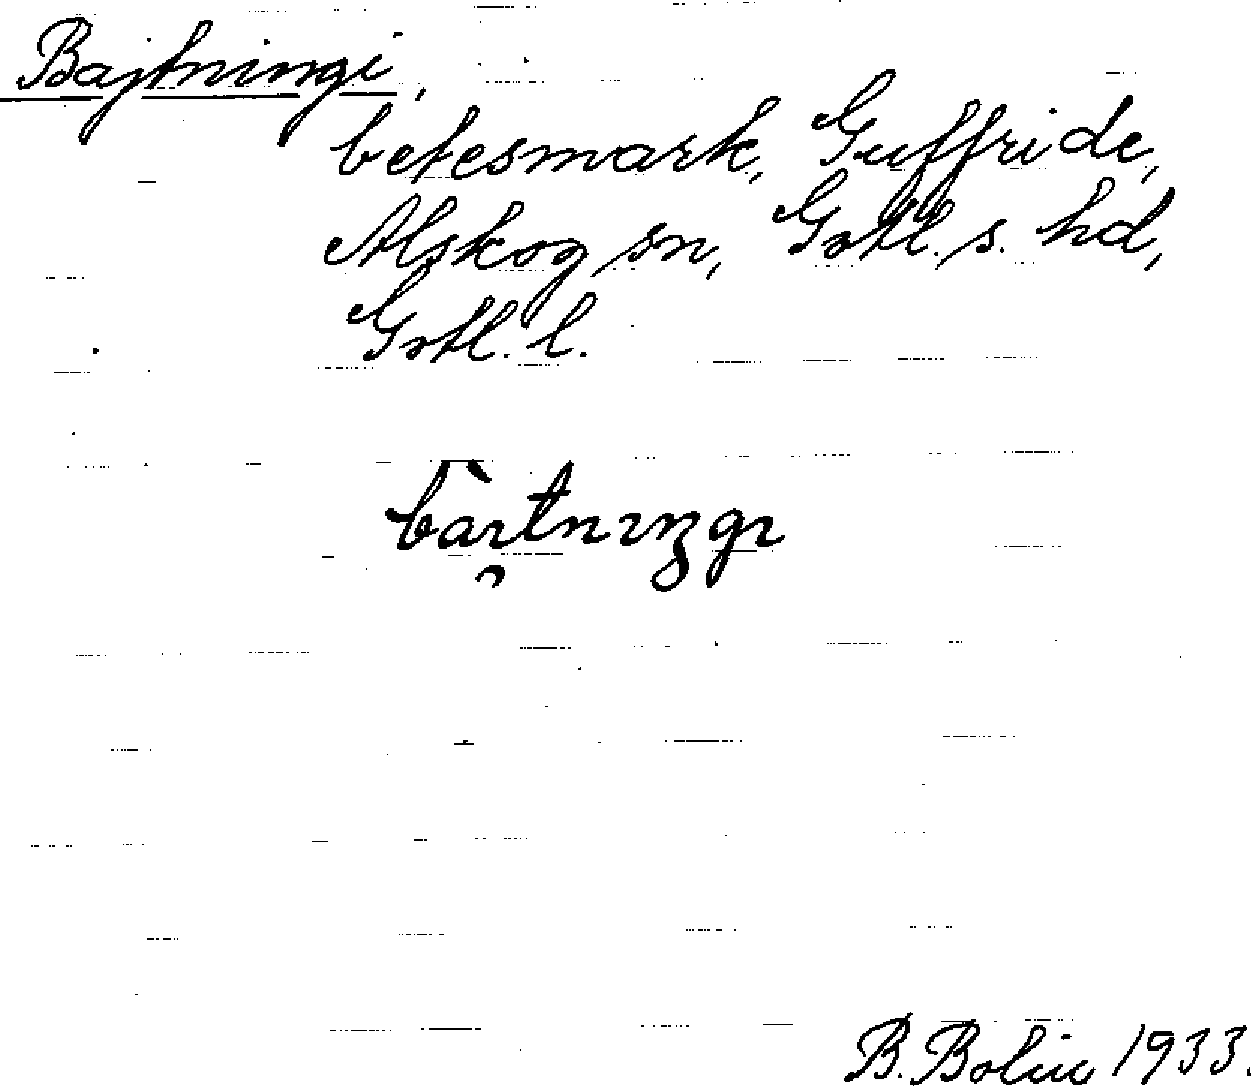 Bajtningi,
betesmark, Guffride,
Alskog sn, Gotl. s. hd,
Gotl. l.
bàı̯tnıŋgı
B. Bolin 1933.